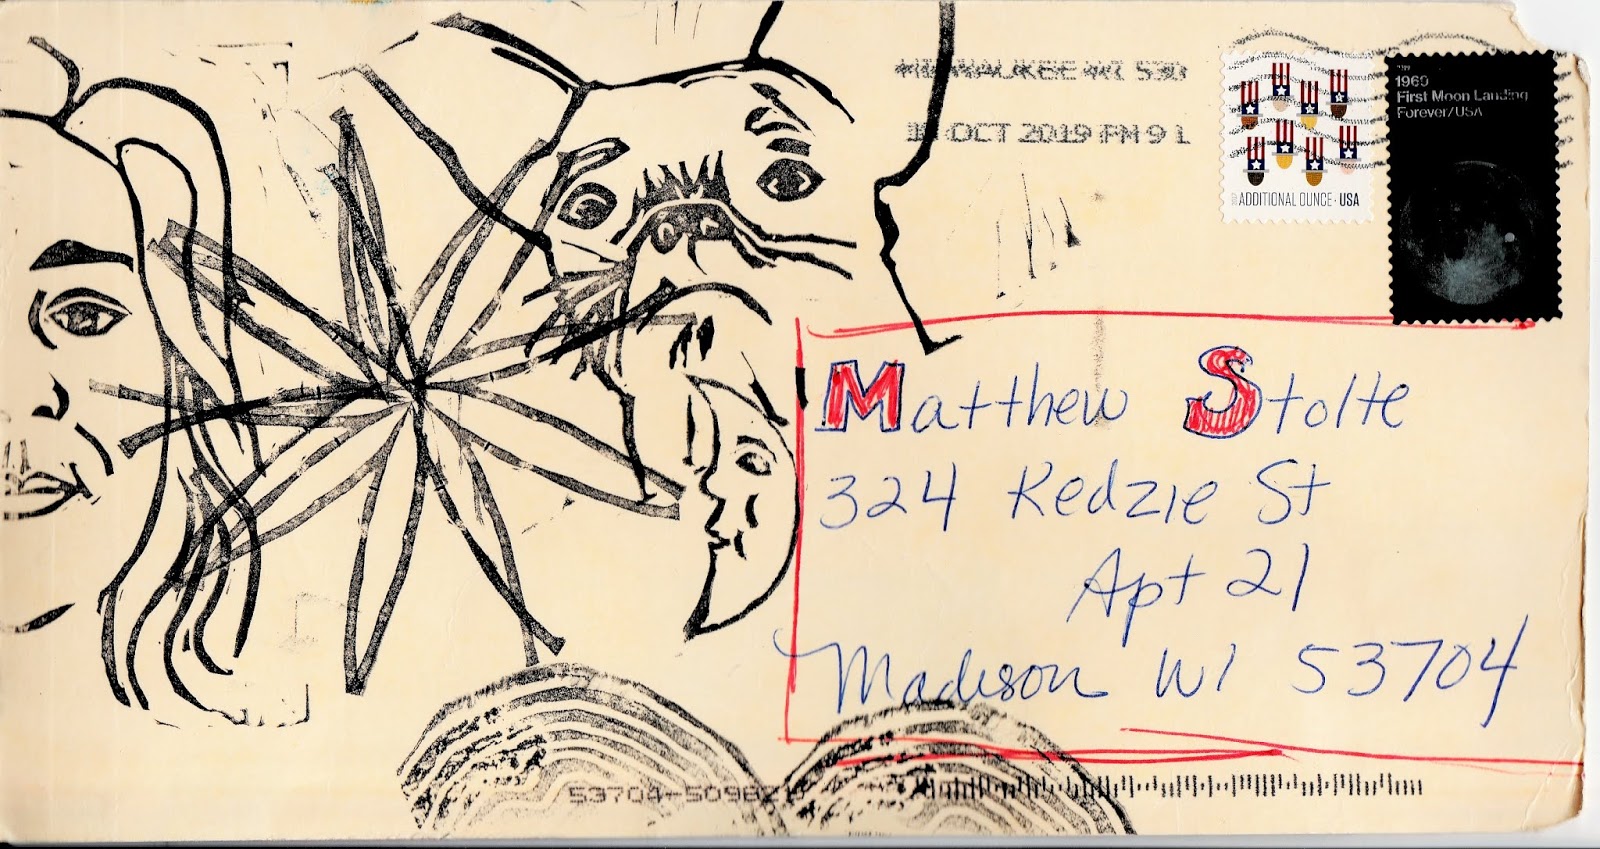 MILWAUKEE WI 530
OCT 2019 PM 9 L
ADDITIONAL OUNCE · USA
1969
First Moon Landing
Forever/USA
Matthew Stolte
324 Kedzie St
Apt 21
Madison WI 53704
53704-5098